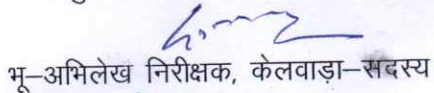 भू–अभिलेख निरीक्षक, केलवाड़ा–सदस्य